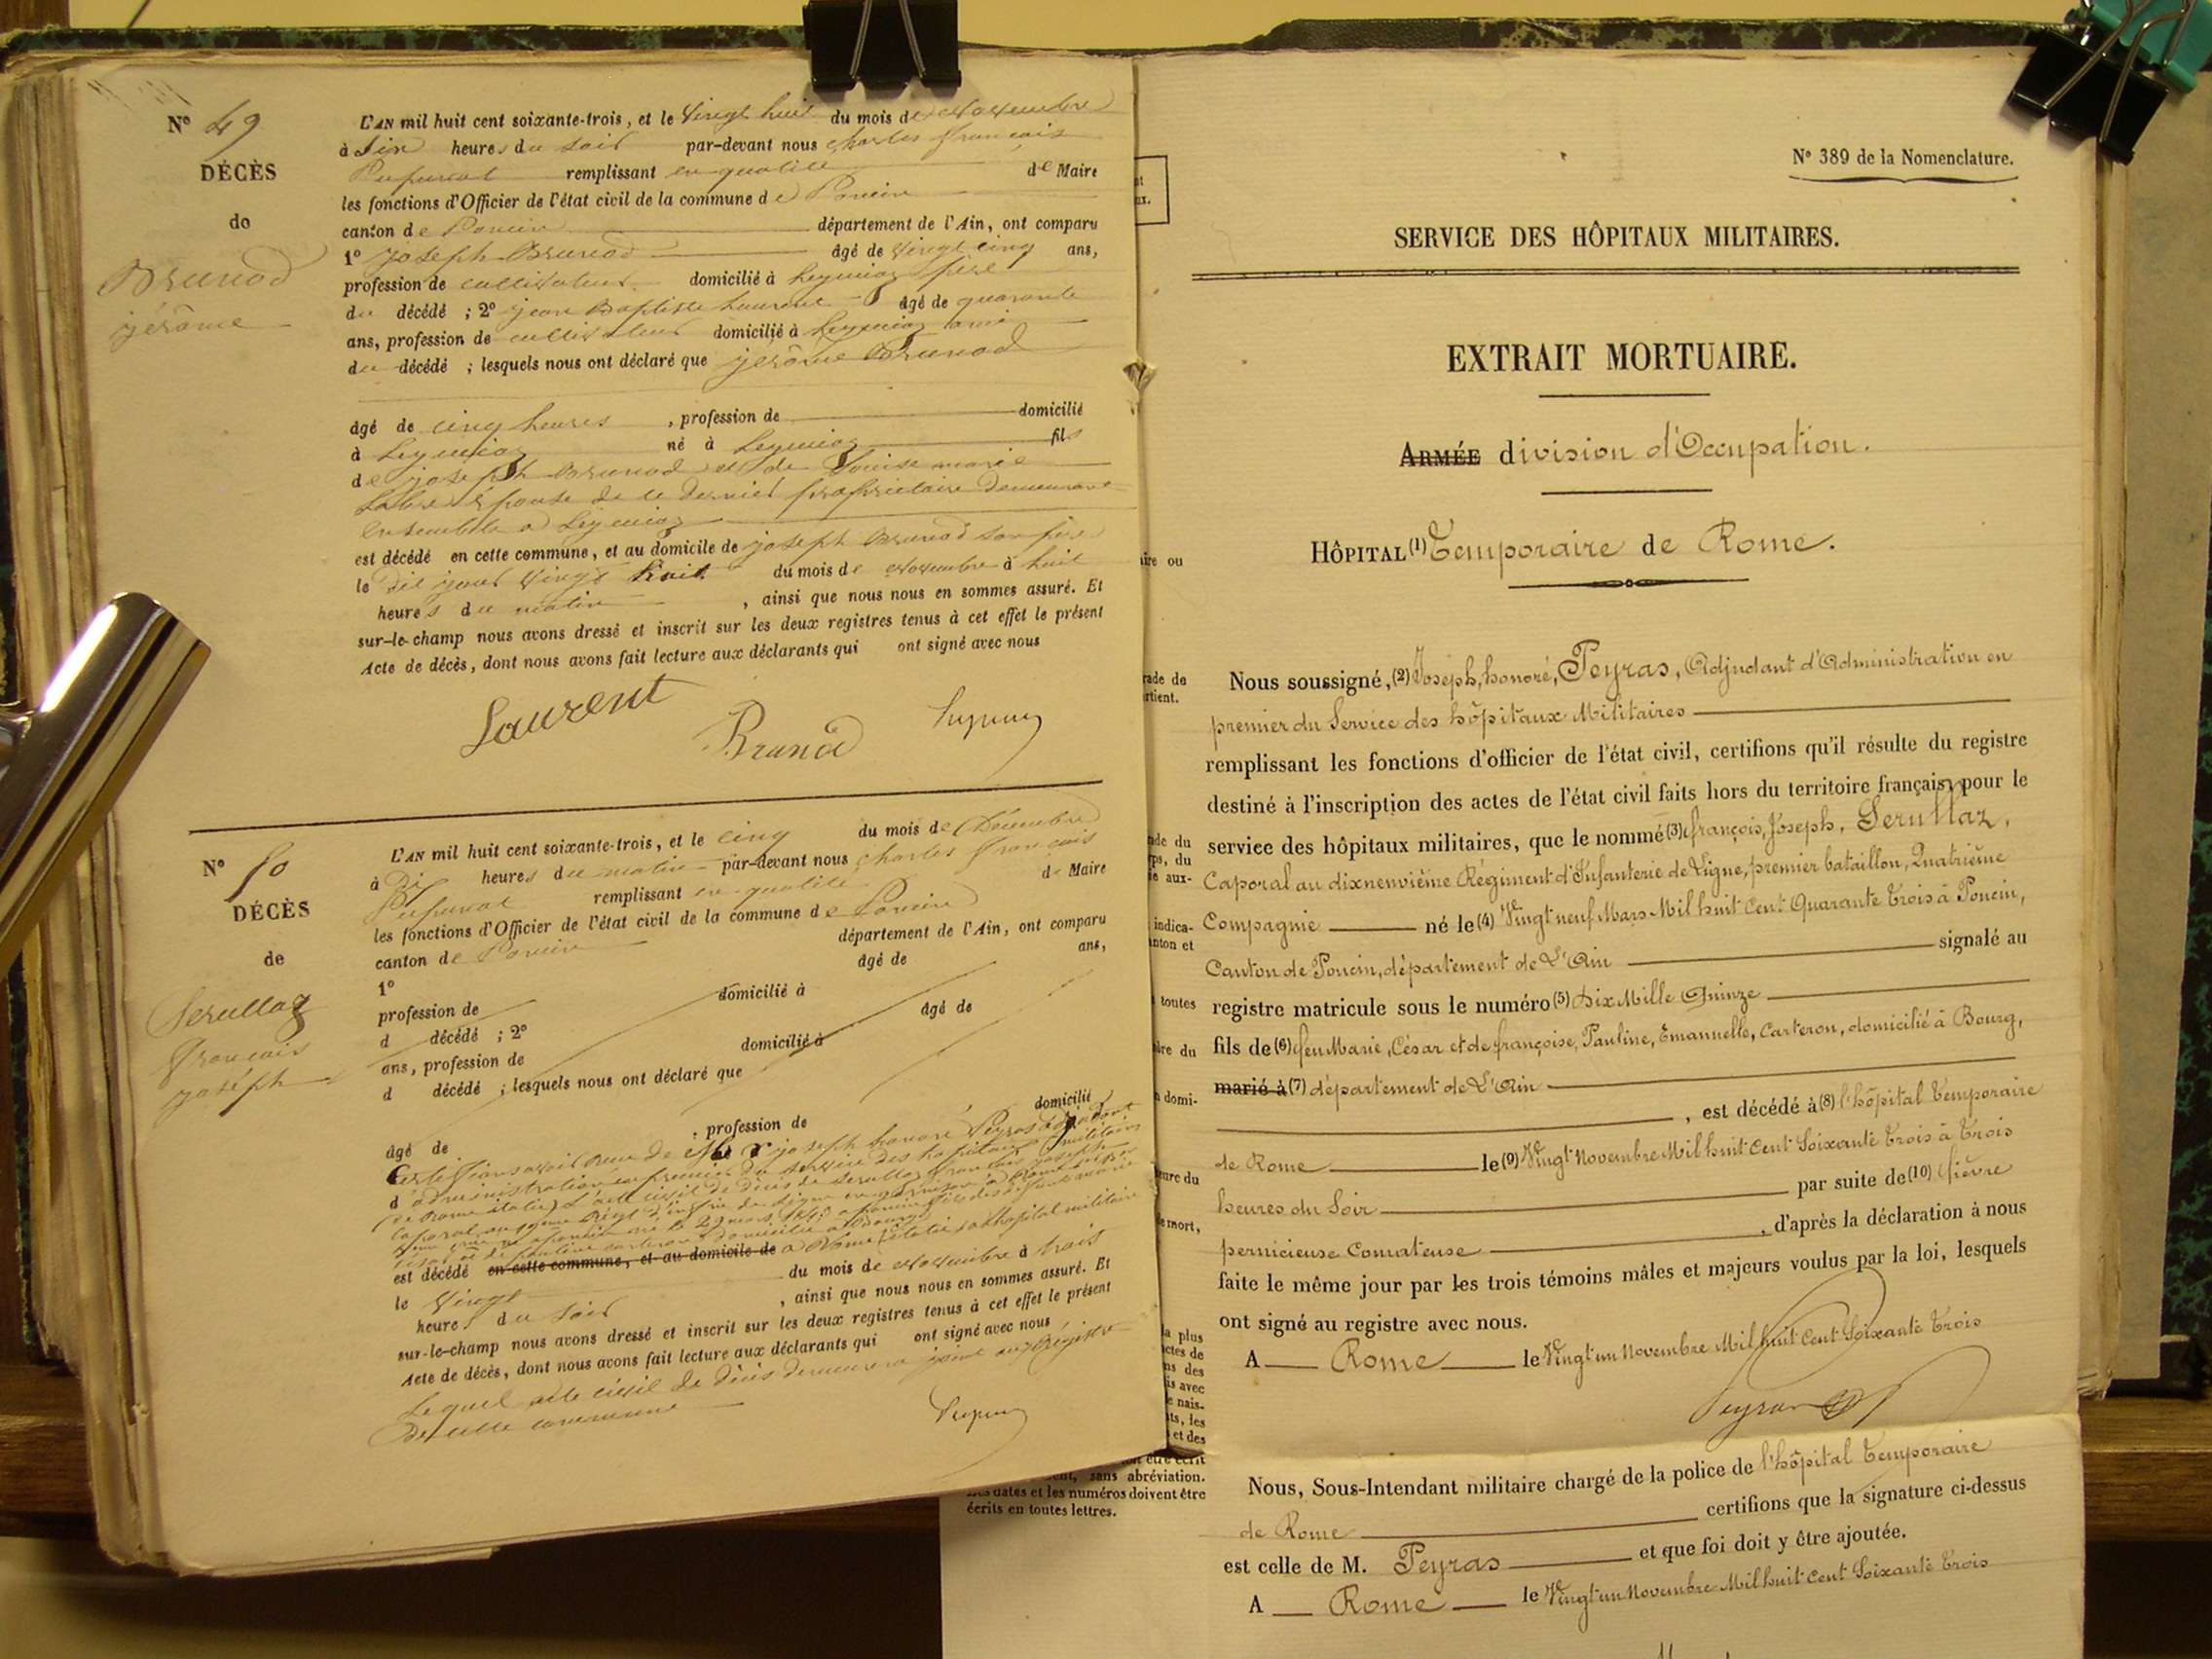 N° 49
DÉCÈS
de
Brunod
jérôme
L'AN mil huit cent soixante-trois, et le vingt huit du mois de Novembre
à Six heures du soir par-devant nous Charles François
remplissant en qualité de Maire
les fonctions d'Officier de l'état civil de la commune de Poncin
canton de Poncin département de l'Ain, ont comparu
1° Joseph Brunod âgé de vingt cinq ans,
profession de cultivateur domicilié à Leymiaz père
du décédé ; 2° jean Baptiste Laurent âgé de quarante
ans, profession de cultivateur domicilié à Leymiaz ami
du décédé ; lesquels nous ont déclaré que jérôme Brunod
âgé de cinq heures , profession de domicilié
à Leymiaz né à Leymiaz fils
de joseph Brunod et de Louise marie
épouse de ce dernier propriétaire demeurant
ensemble à Leymiaz
est décédé en cette commune, et au domicile de joseph Brunod son père
le dit jour vingt huit du mois de Novembre à huit
heures du matin , ainsi que nous nous en sommes assuré. Et
sur-le-champ nous avons dressé et inscrit sur les deux registres tenus à cet effet le présent
Acte de décès, dont nous avons fait lecture aux déclarants qui ont signé avec nous
Laurent
Brunod
N° 50
DÉCÈS
de
Serullaz
François
joséph
L'AN mil huit cent soixante-trois, et le cinq du mois de Décembre
à Dix heures du matin par-devant nous Charles François
remplissant en qualité de Maire
les fonctions d'Officier de l'état civil de la commune de Poncin
canton de Poncin département de l'Ain, ont comparu
1° âgé de ans,
profession de domicilié à
d décédé ; 2° âgé de
ans, profession de domicilié à
d décédé ; lesquels nous ont déclaré que
âgé de , profession de domicilié
Certifions avoir reçu de Mr joseph honoré Peyras adjudant
d'administration en premier du service des hôpitaux militaires
de Rome (Italie) l'acte civil de décès de Serullaz François joseph
caporal au 19me Régt d'infrie de ligne en garnison à Rome
né le 29 mars 1843 à Poncin fils de défunt marie
César et de pauline Carteron domiciliée à Bourg
est décédé en cette commune, et au domicile de à Rome (Italie) à l'hôpital militaire
le vingt du mois de Novembre à trois
heures du soir , ainsi que nous nous en sommes assuré. Et
sur-le-champ nous avons dressé et inscrit sur les deux registres tenus à cet effet le présent
Acte de décès, dont nous avons fait lecture aux déclarants qui ont signé avec nous
Lequel acte civil de décès demeurera joint au Régistre
de cette commune
être écrit
sans abréviation.
dates et les numéros doivent être
écrits en toutes lettres.
N° 389 de la Nomenclature.
SERVICE DES HÔPITAUX MILITAIRES.
EXTRAIT MORTUAIRE.
ARMÉE division d'Occupation.
HÔPITAL (1) Temporaire de Rome.
Nous soussigné, (2) Joseph, honoré, Peyras, Adjudant d'Administration en
premier du Service des hôpitaux Militaires
remplissant les fonctions d'officier de l'état civil, certifions qu'il résulte du registre
destiné à l'inscription des actes de l'état civil faits hors du territoire français pour le
service des hôpitaux militaires, que le nommé (3) françois, Joseph, Serullaz,
Caporal au dixneuvième Régiment d'Infanterie de Ligne, premier bataillon, Quatrième
Compagnie né le (4) Vingt neuf Mars Mil huit Cent Quarante Trois à Poncin,
Canton de Poncin, département de L'Ain signalé au
registre matricule sous le numéro (5) Dix Mille Quinze
fils de (6) feu Marie, César et de françoise, Pauline, Emanuelle, Carteron, domicilié à Bourg,
marié à (7) département de L'Ain
, est décédé à (8) l'hôpital Temporaire
de Rome le (9) Vingt Novembre Mil huit Cent Soixante Trois à Trois
heures du Soir par suite de (10) fièvre
pernicieuse Comateuse , d'après la déclaration à nous
faite le même jour par les trois témoins mâles et majeurs voulus par la loi, lesquels
ont signé au registre avec nous.
A Rome le Vingt un Novembre Mil huit Cent Soixante Trois
Peyras
Nous, Sous-Intendant militaire chargé de la police de l'hôpital Temporaire
de Rome certifions que la signature ci-dessus
est celle de M. Peyras et que foi doit y être ajoutée.
A Rome le Vingt un Novembre Mil huit Cent Soixante Trois